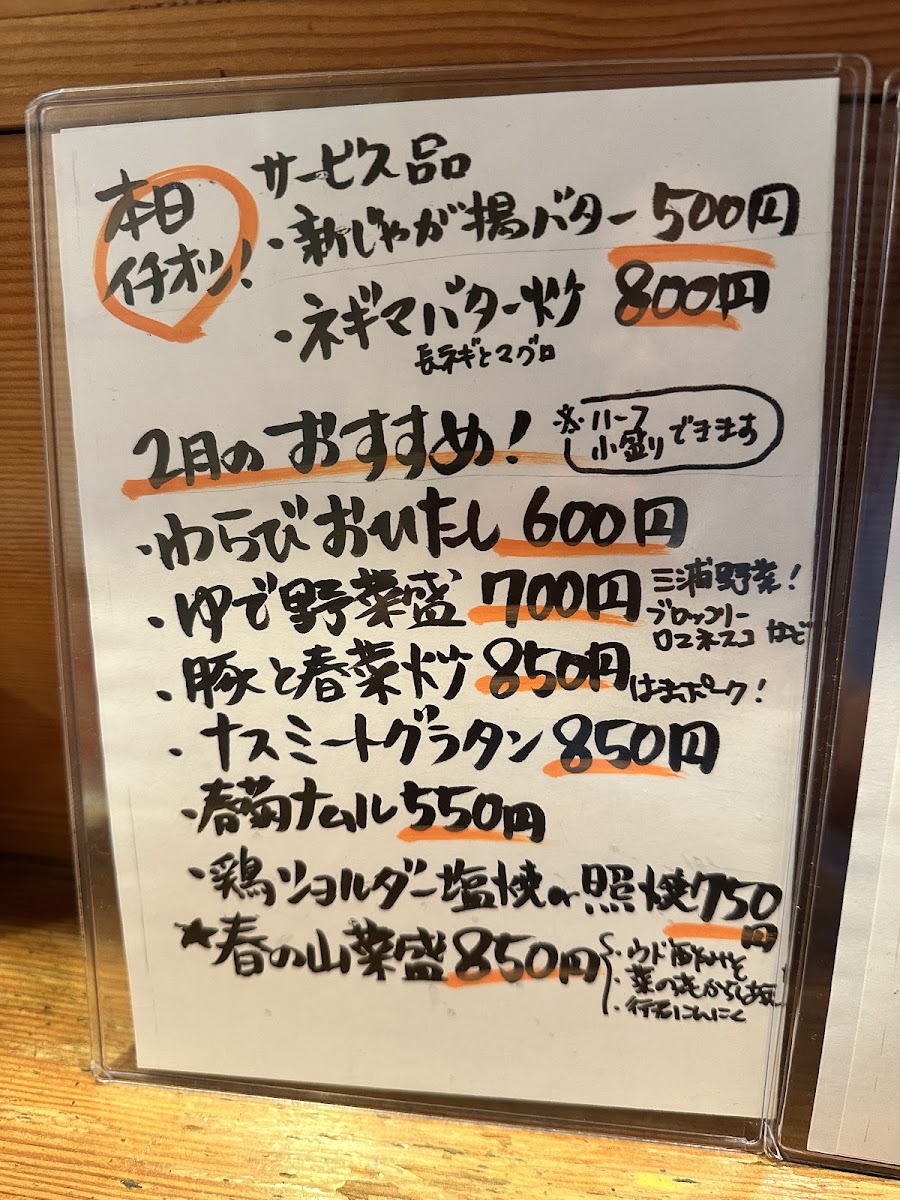 本日
イチオシ!
サービス品
・新じゃが揚バター 500円
・ネギマバター炒 800円
長ネギとマグロ
2月のおすすめ!
※ハーフ
小盛りできます
・わらびおひたし 600円
・ゆで野菜盛 700円
三浦野菜!
ブロッコリー
ロマネスコ など
・豚と春菜炒 850円 はまポーク!
・ナスミートグラタン 850円
・春菊ナムル 550円
・鶏ショルダー塩焼or照焼750
円
★春の山菜盛 850円
・ウド
・菜の花からし
・行者にんにく